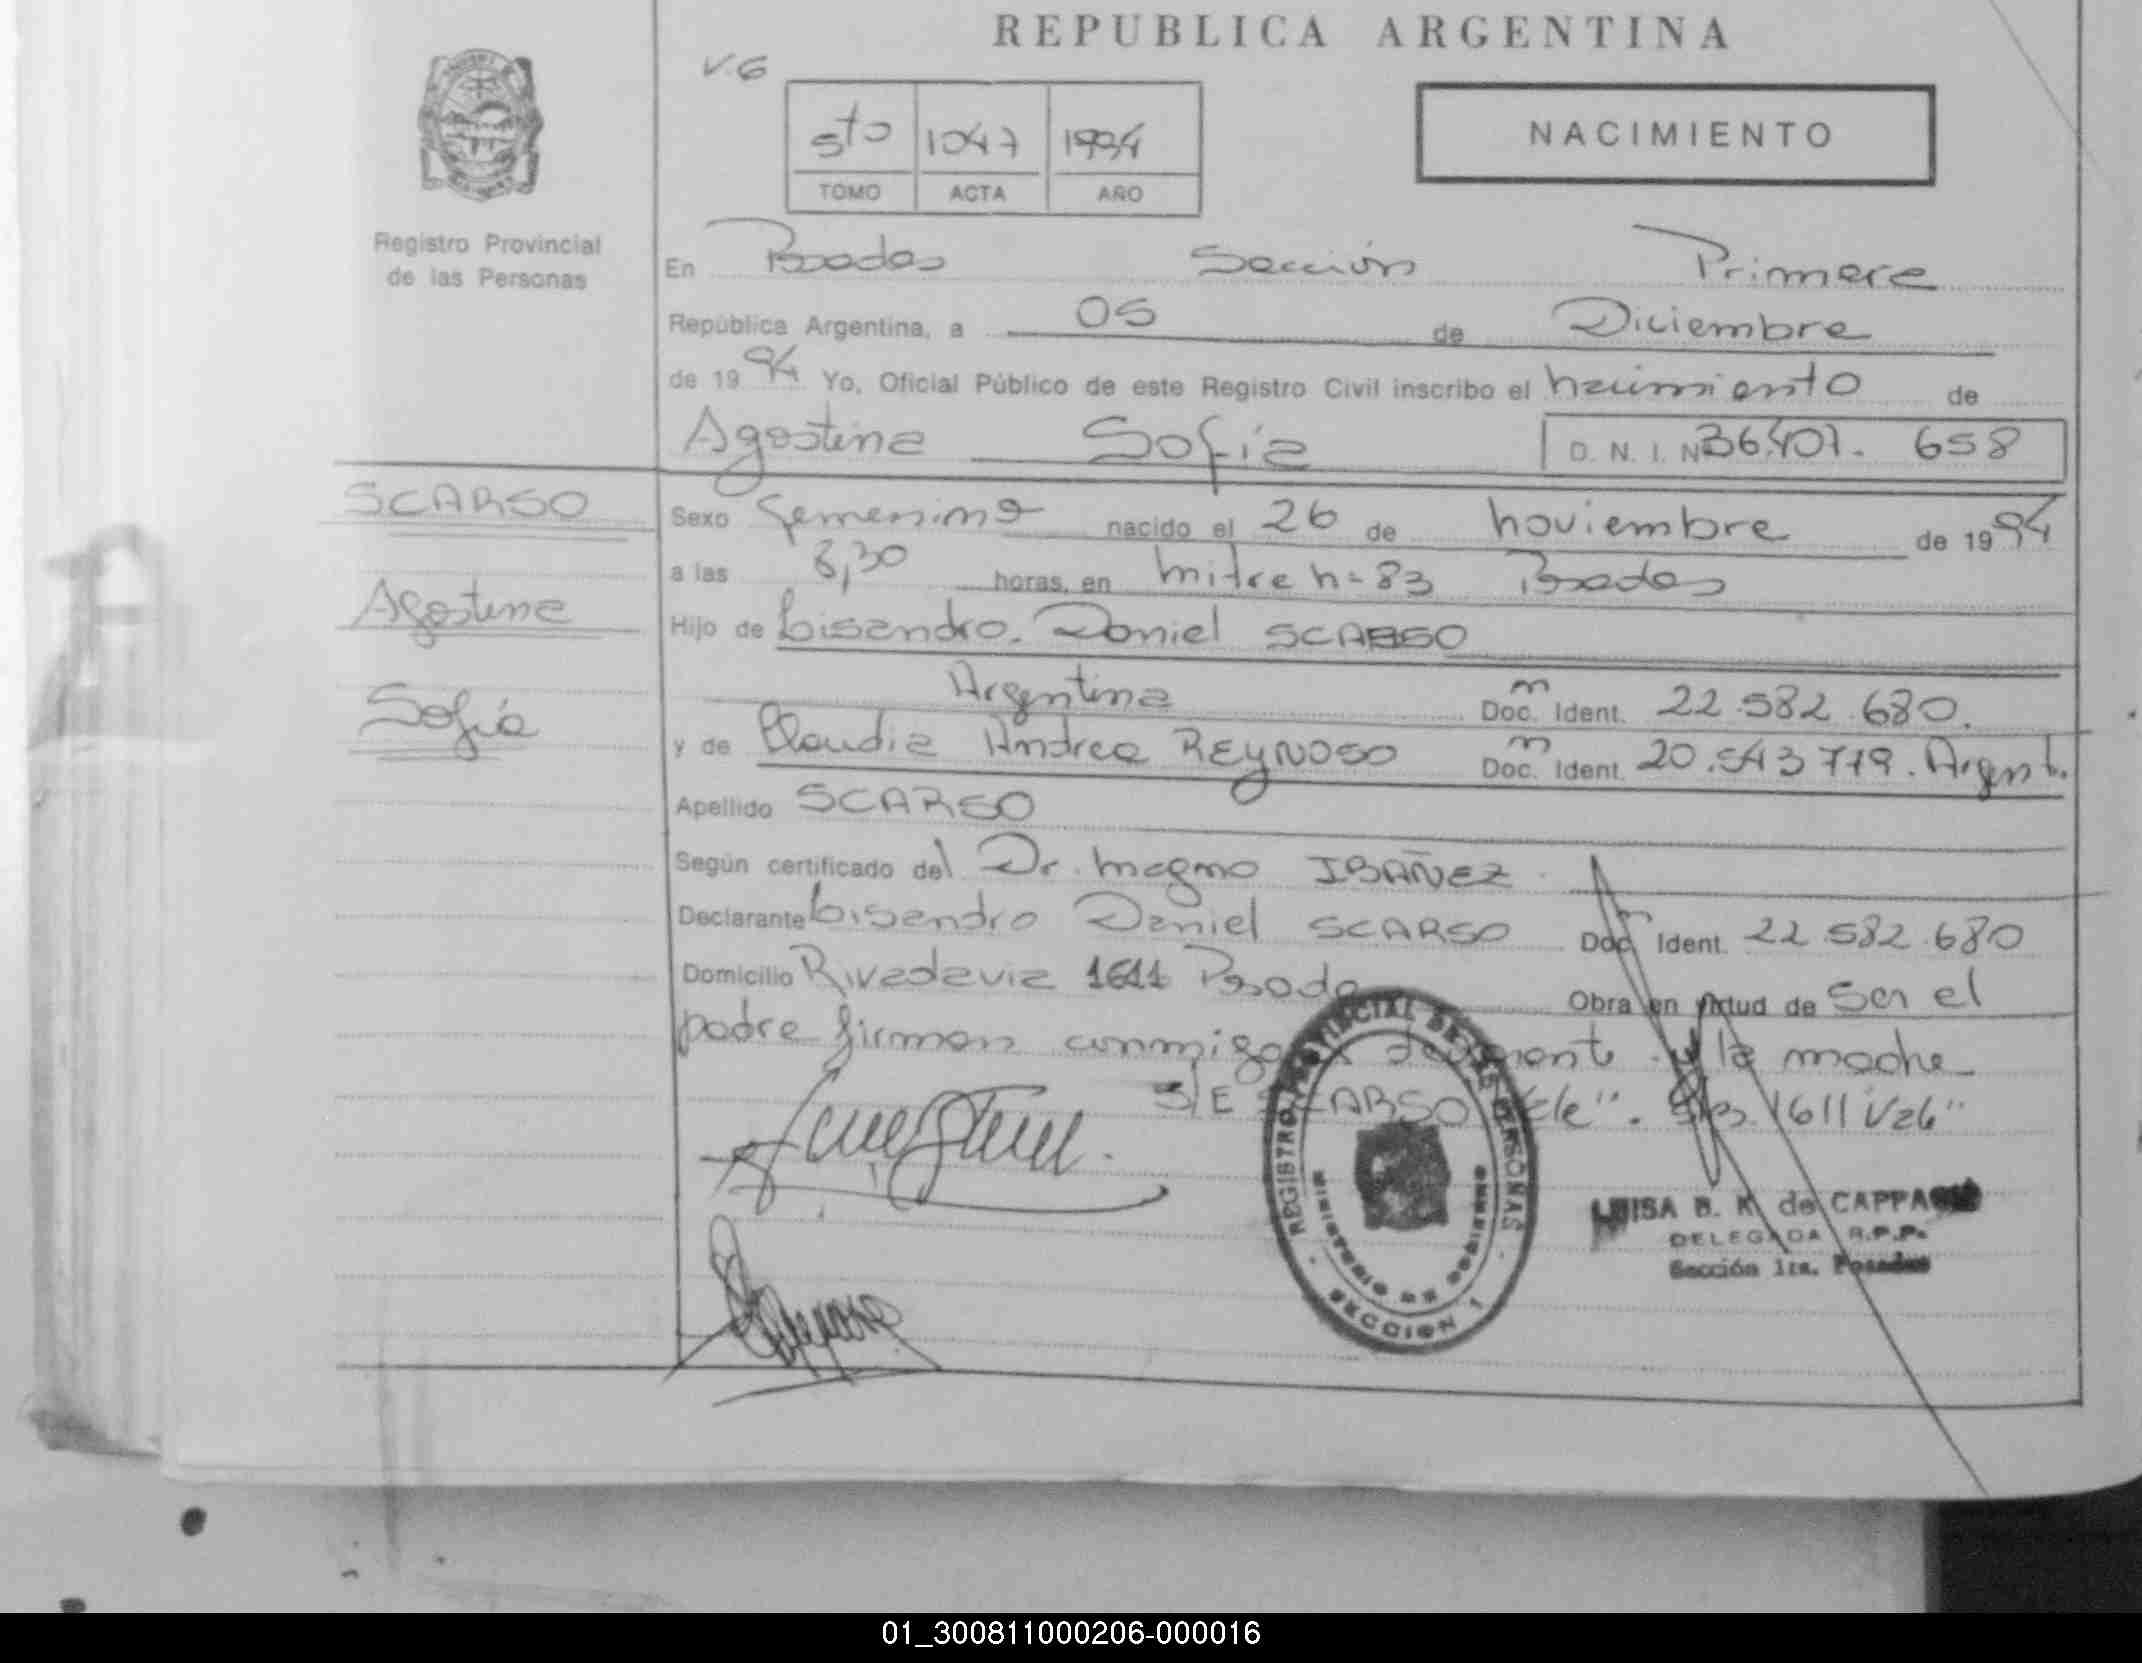 REPUBLICA ARGENTINA
V.G
5to 1047 1994
TOMO ACTA AÑO
NACIMIENTO
Registro Provincial
de las Personas
En Posadas Sección Primera
República Argentina, a 05 de Diciembre
de 1994 Yo, Oficial Público de este Registro Civil inscribo el nacimiento de
Agostina Sofía D. N. I. Nº 36.407.658
SCARSO
Agostina
Sofía
Sexo femenino nacido el 26 de noviembre de 1994
a las 8,30 horas, en mitre n= 83 Posadas
Hijo de Lisandro Daniel SCARSO
Argentina Doc. Ident. m 22.582.680.
y de Claudia Andrea REYNOSO Doc. Ident. m 20.543.719. Argent.
Apellido SCARSO
Según certificado del Dr. magno IBAÑEZ
Declarante Lisandro Daniel SCARSO Doc. Ident. m 22.582.680
Domicilio Rivadavia 1611 Posadas Obra en virtud de ser el
padre firman conmigo el declarante y la madre
S/E SCARSO "Vale". 1611 Vale"
REGISTRO PROVINCIAL DE LAS PERSONAS
MINISTERIO DE GOBIERNO
SECCION 1
LUISA B. K. de
DELEGADA R.P.P.
Sección 1ra. Posadas
01_300811000206-000016